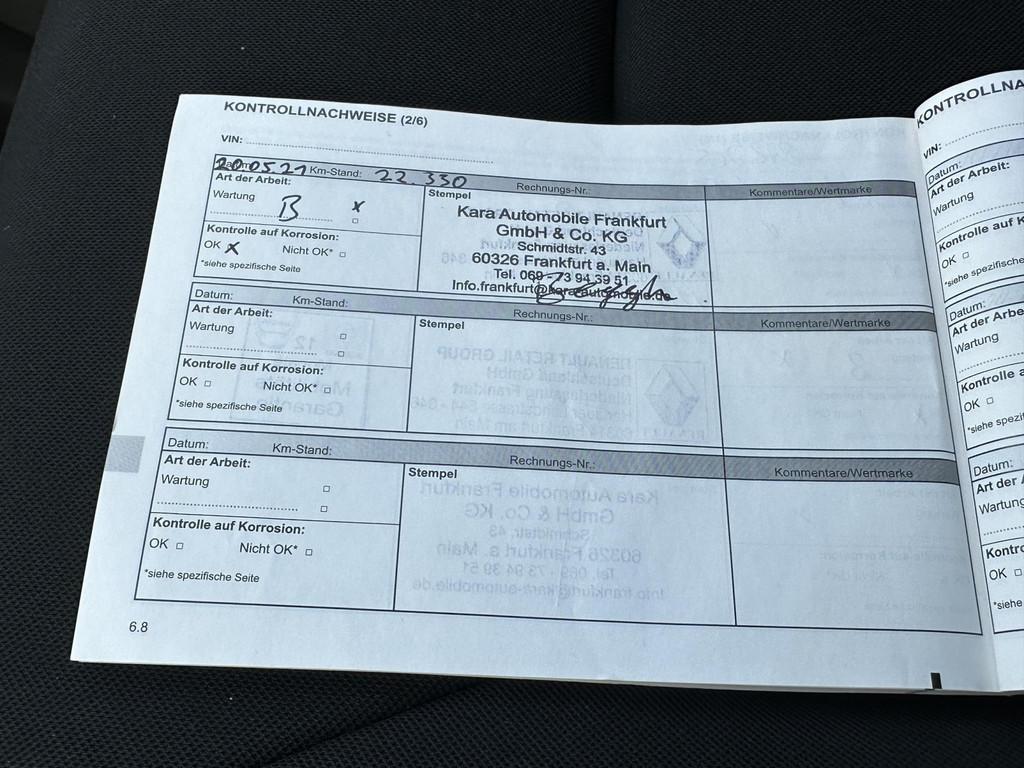 KONTROLLNACHWEISE (2/6)
VIN:
20.05.21 Km-Stand: 22.330 Rechnungs-Nr.: Kommentare/Wertmarke
Art der Arbeit: Stempel
Wartung B x
Kontrolle auf Korrosion:
OK x Nicht OK*
*siehe spezifische Seite
Kara Automobile Frankfurt
GmbH & Co. KG
Schmidtstr. 43
60326 Frankfurt a. Main
Tel. 069-73 94 39 51
Info.frankfurt@kara-automobile.de
Datum: Km-Stand: Rechnungs-Nr.: Kommentare/Wertmarke
Art der Arbeit: Stempel
Wartung
Kontrolle auf Korrosion:
OK Nicht OK*
*siehe spezifische Seite
Datum: Km-Stand: Rechnungs-Nr.: Kommentare/Wertmarke
Art der Arbeit: Stempel
Wartung
Kontrolle auf Korrosion:
OK Nicht OK*
*siehe spezifische Seite
6.8
KONTROLLNA
VIN:
Datum:
Art der Arbei
Wartung
Kontrolle auf K
OK
*siehe spezifische
Datum:
Art der Arbe
Wartung
Kontrolle a
OK
*siehe spezi
Datum:
Art der A
Wartung
Kontro
OK
*siehe